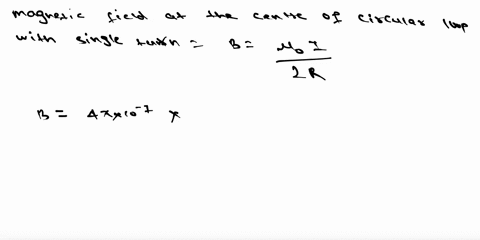 magnetic field at the centre of circular loop
with single turn = B = μ₀ I
2R
B = 4π×10⁻⁷ ×